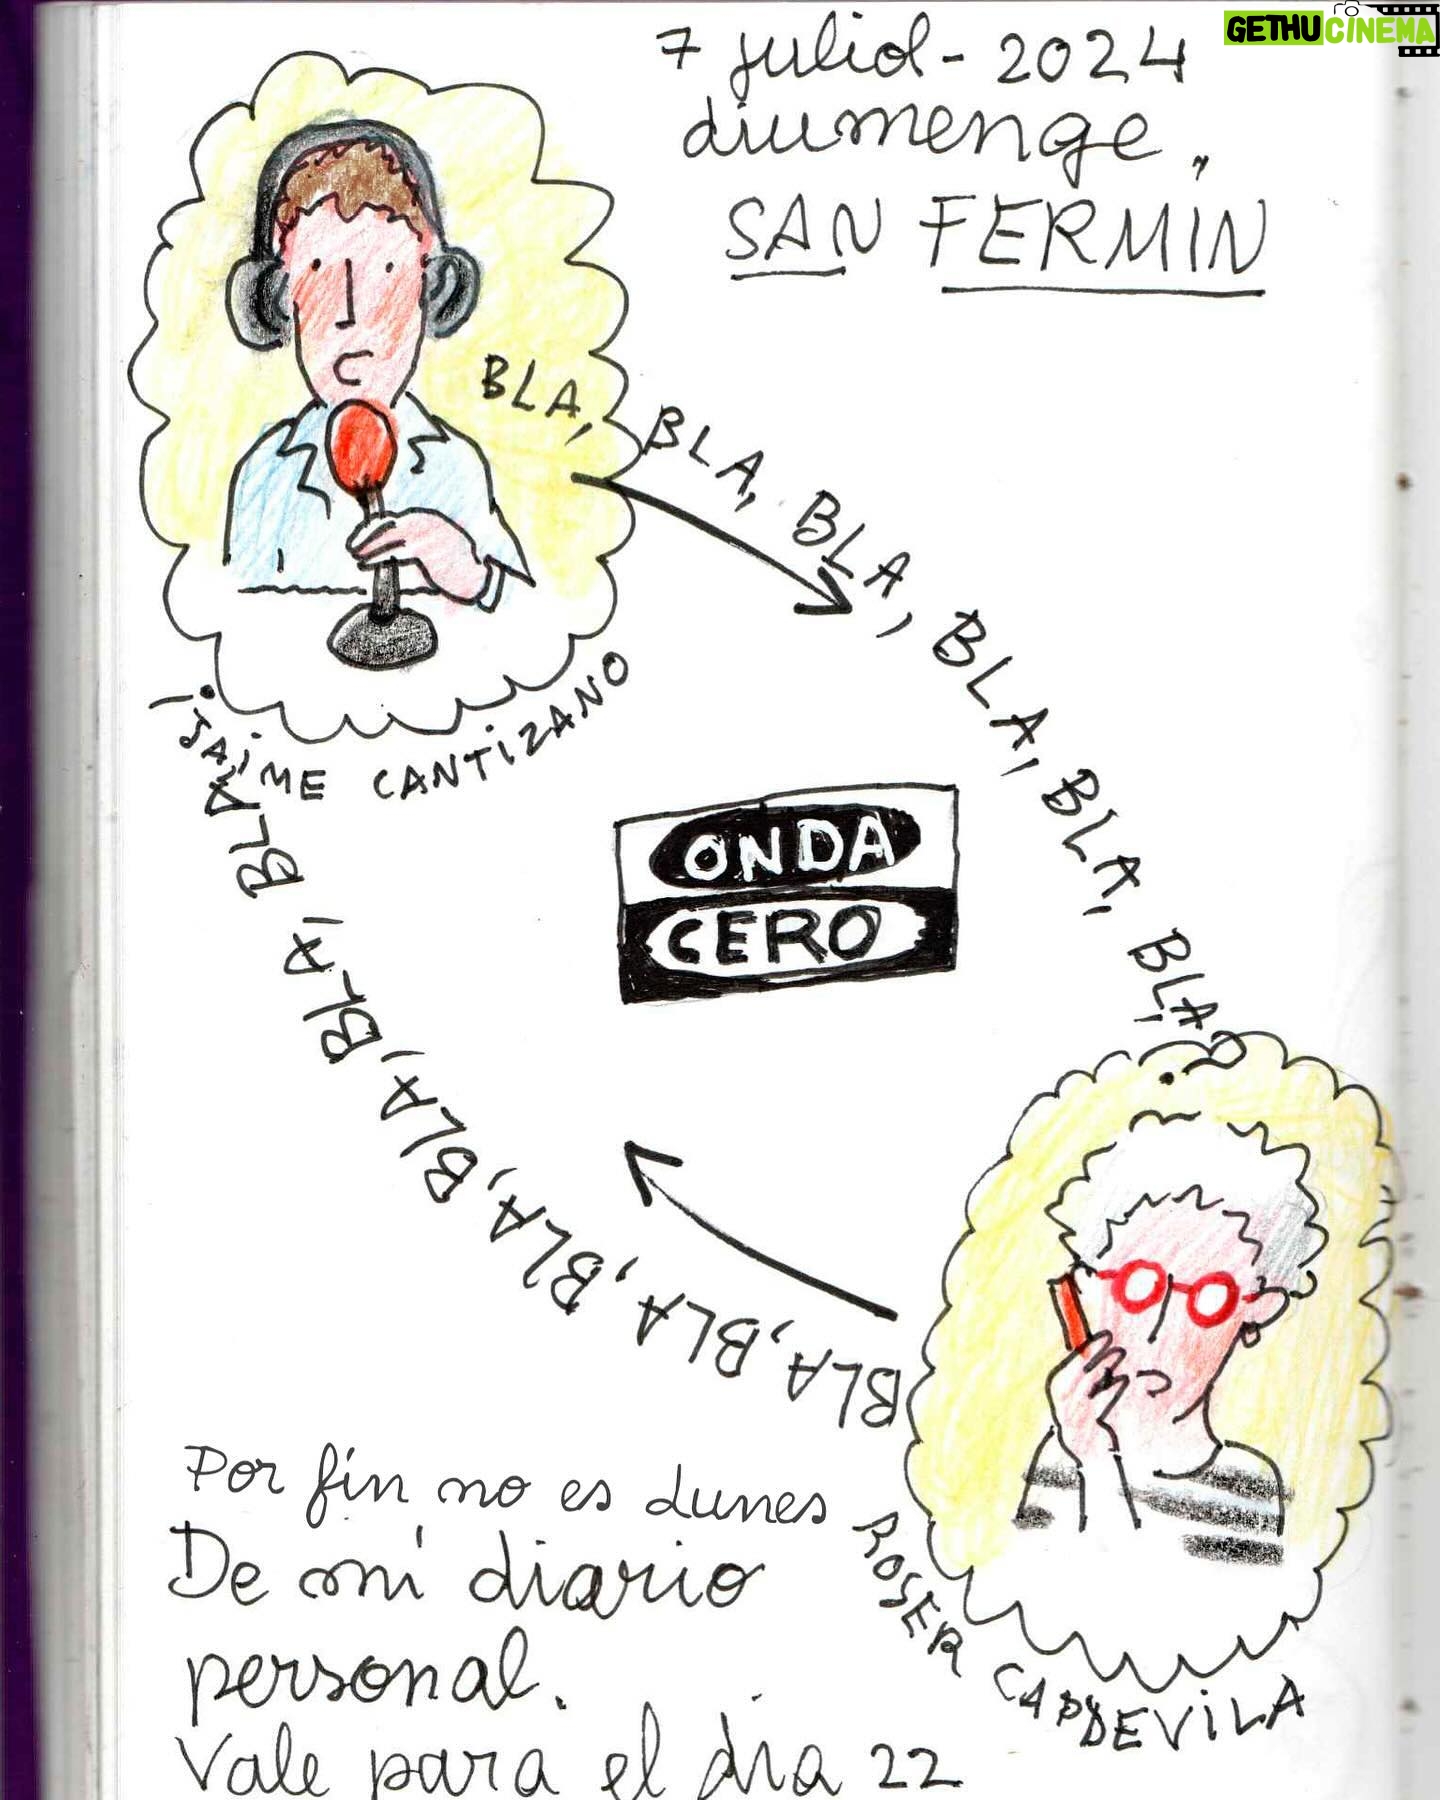 GETHUCINEMA
7 juliol - 2024
diumenge,
SAN FERMIN
BLA, BLA, BLA, BLA, BLA, BLA
¡JAIME CANTIZANO
ONDA
CERO
BLA, BLA, BLA, BLA, BLA, BLA, BLA, BLA
ROSER CAPDEVILA
Por fin no es dunes
De mi diario
personal.
Vale para el dia 22